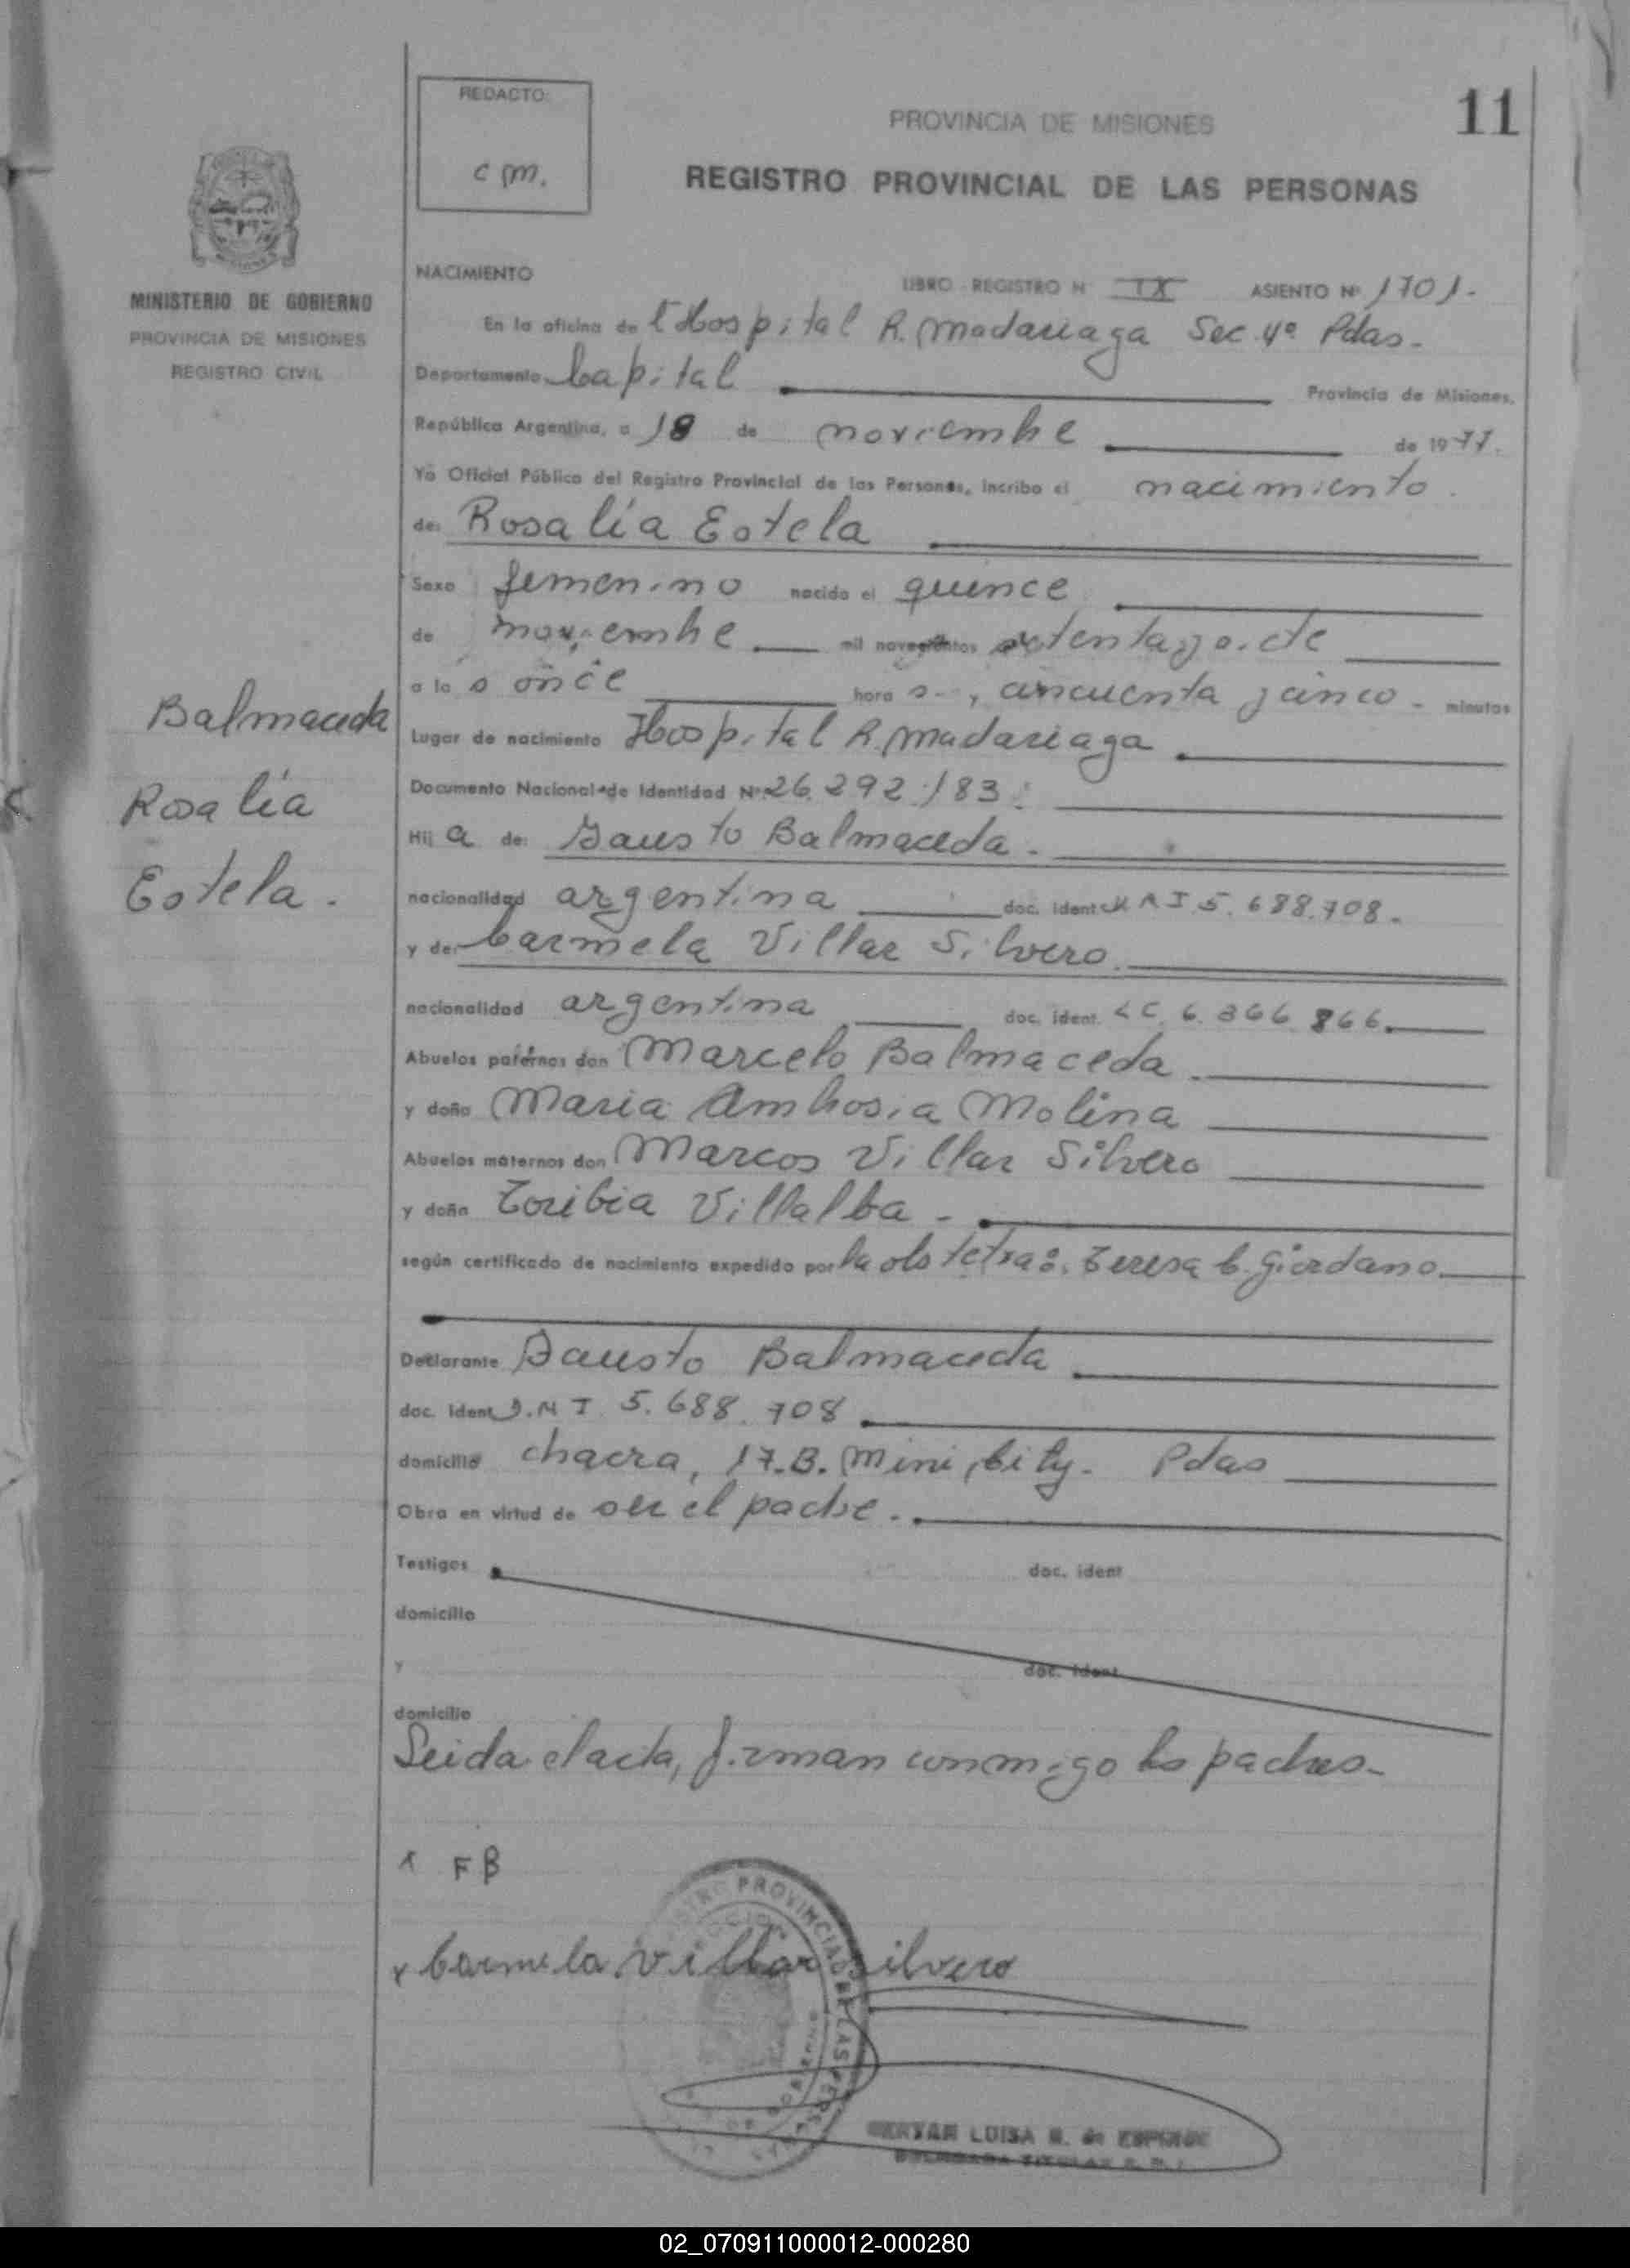 REDACTO:
cm.
11
PROVINCIA DE MISIONES
REGISTRO PROVINCIAL DE LAS PERSONAS
MINISTERIO DE GOBIERNO
PROVINCIA DE MISIONES
REGISTRO CIVIL
NACIMIENTO
LIBRO REGISTRO N IX ASIENTO Nº 1701.-
En la oficina de Hospital R. Madariaga Sec 4ª Pdas.-
Departamento Capital Provincia de Misiones.
República Argentina, a 18 de noviembre de 1977.
Yo Oficial Público del Registro Provincial de las Personas, incribo el nacimiento.
de: Rosalía Estela
Sexo femenino nacido el quince
de noviembre mil novecientos setenta y siete
a las once horas, cincuenta y cinco - minutos
Lugar de nacimiento Hospital R. Madariaga
Documento Nacional de Identidad Nº 26.292.183.
Hija de: Fausto Balmaceda.
nacionalidad argentina doc. ident. 5.688.708.-
y de: Carmela Villar Silvero
nacionalidad argentina doc. ident. LC. 6.366.866.
Abuelos paternos don Marcelo Balmaceda
y doña Maria Ambrosia Molina
Abuelos maternos don Marcos Villar Silvero
y doña Toribia Villalba -
según certificado de nacimiento expedido por la obstetra: Teresa C. Giordano
Declarante Fausto Balmaceda
doc. ident D.N.I. 5.688.708
domicilio chacra, 17.B. Mini City. Pdas
Obra en virtud de ser el padre.
Testigos doc. ident
domicilio
y doc. ident
domicilio
Leida el acta, firman conmigo los padres-
Balmaceda
Rosalía
Estela.
x FB
x Carmela Villar Silvero
REGISTRO PROVINCIAL DE LAS PERSONAS
LUISA
02_070911000012-000280